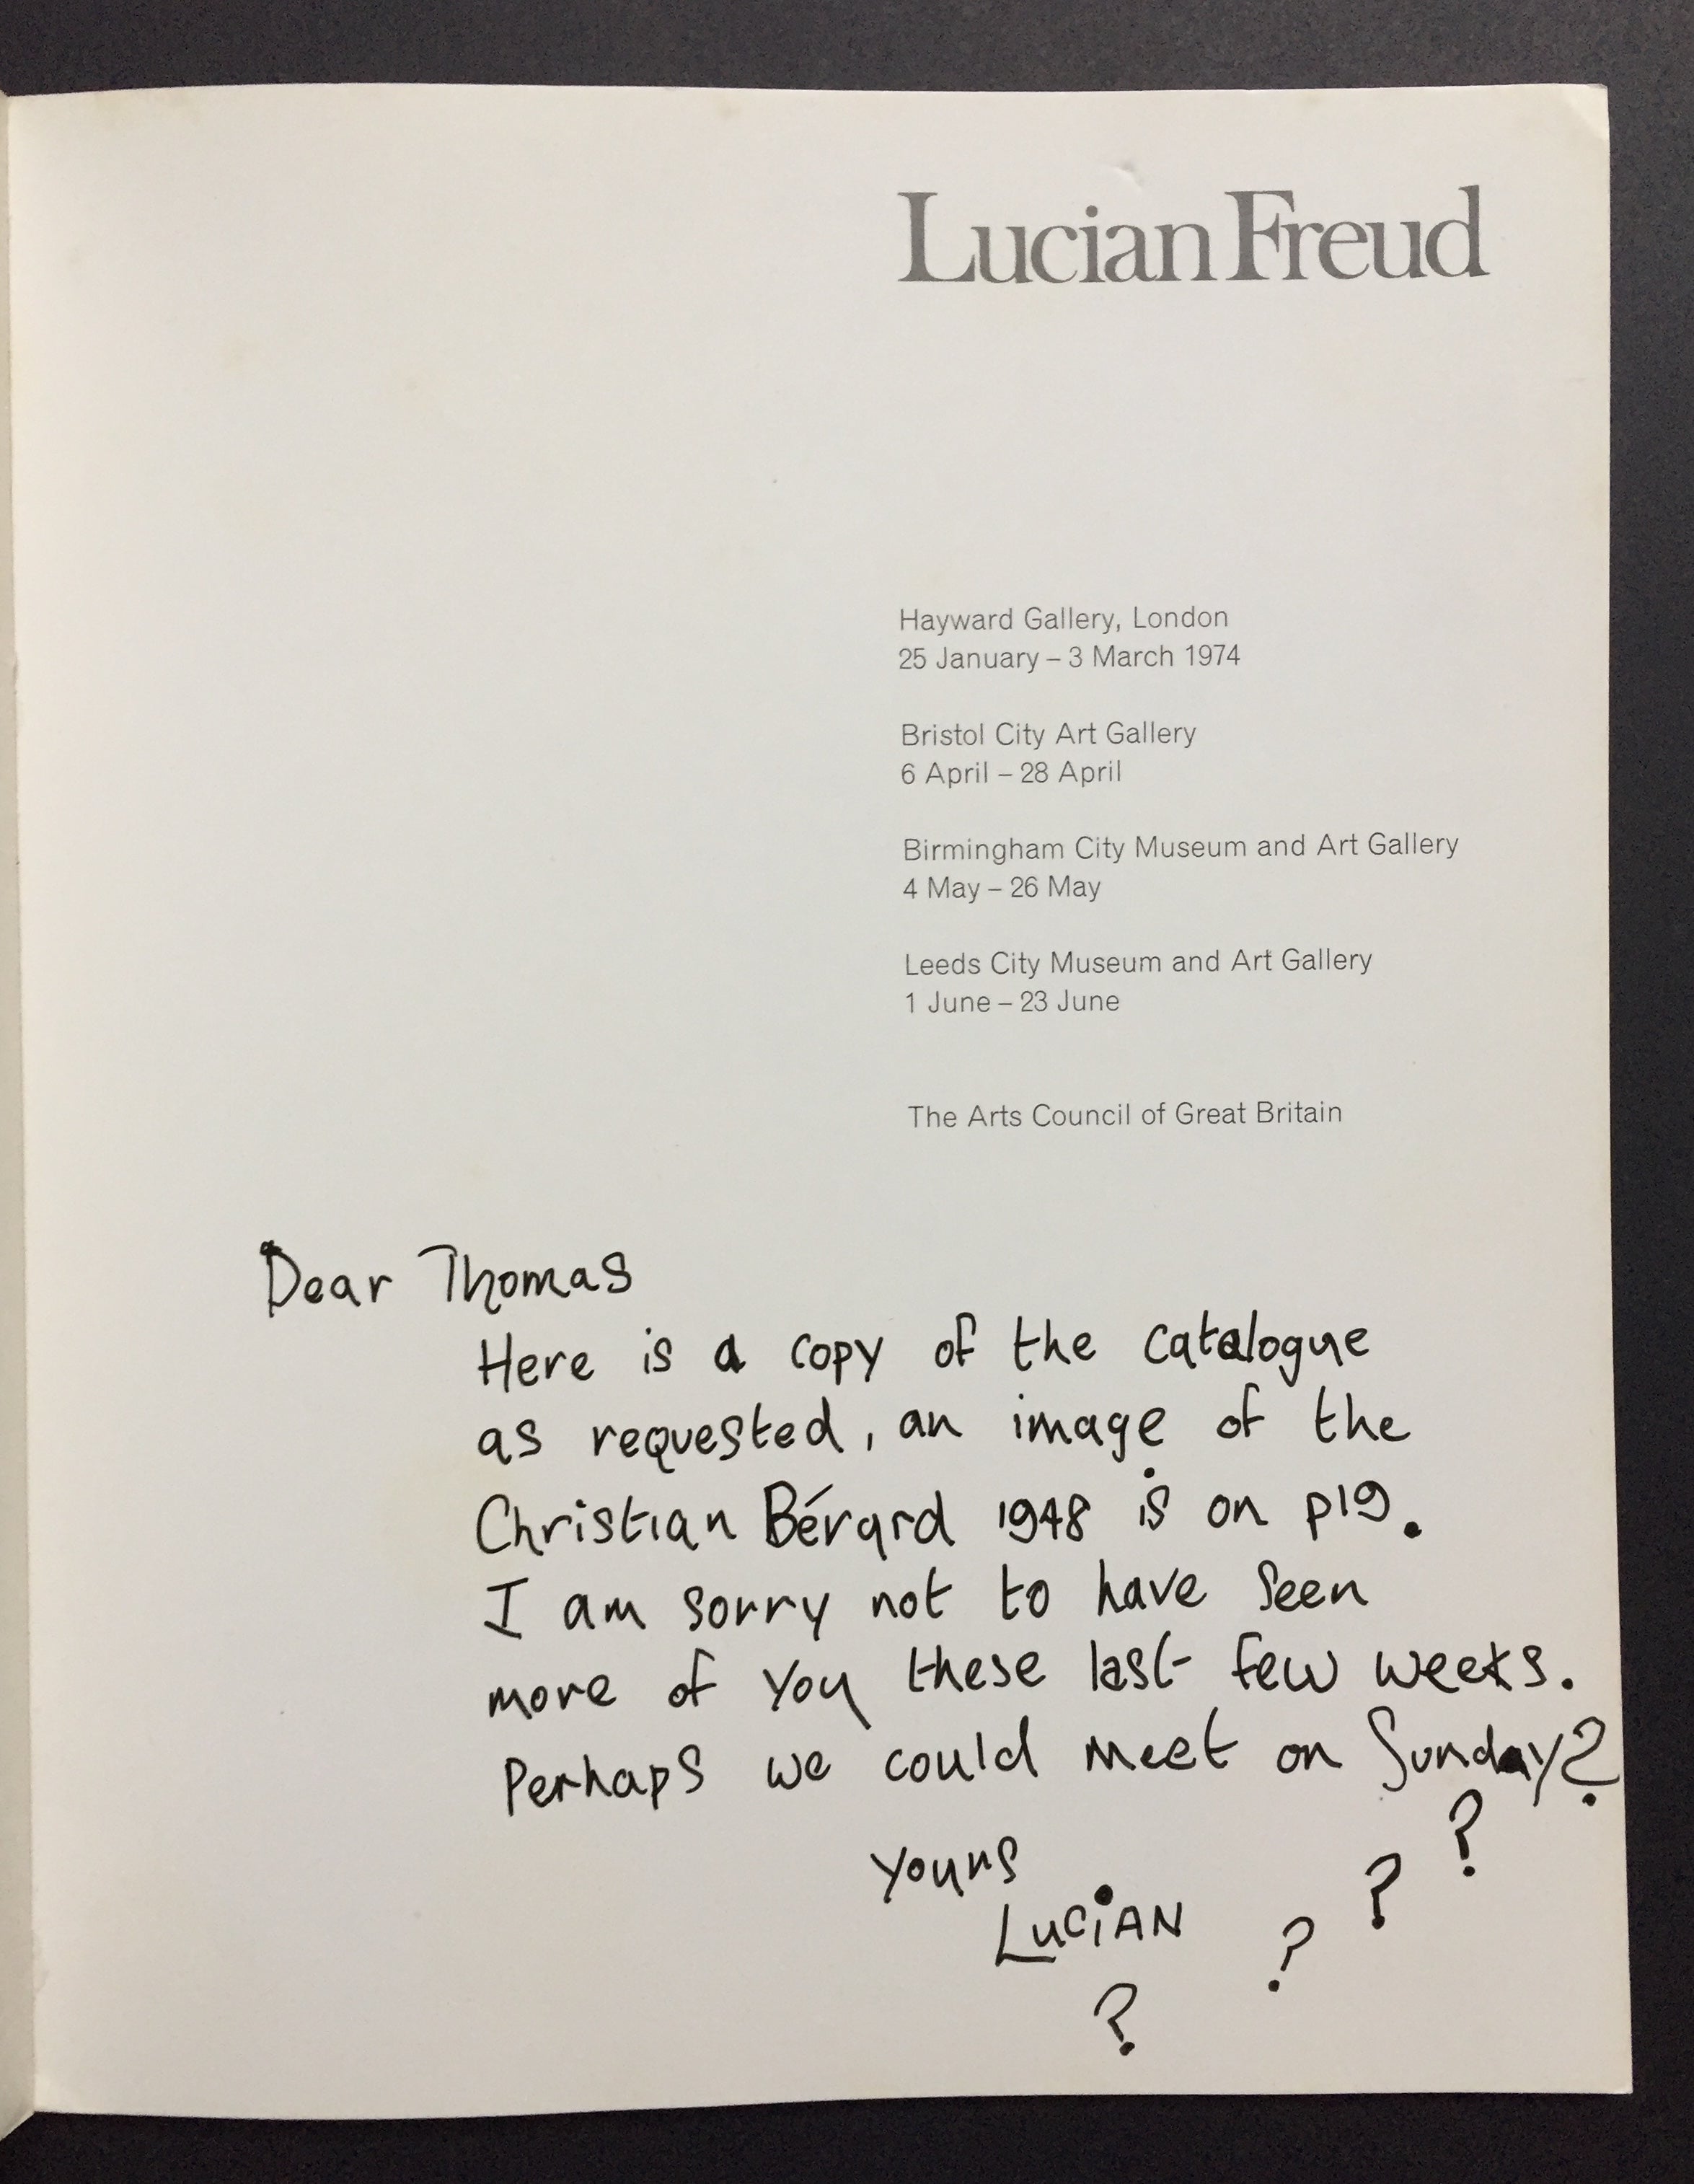 Lucian Freud
Hayward Gallery, London
25 January – 3 March 1974
Bristol City Art Gallery
6 April – 28 April
Birmingham City Museum and Art Gallery
4 May – 26 May
Leeds City Museum and Art Gallery
1 June – 23 June
The Arts Council of Great Britain
Dear Thomas
Here is a copy of the catalogue
as requested, an image of the
Christian Bérard 1948 is on p19.
I am sorry not to have seen
more of you these last few weeks.
Perhaps we could meet on Sunday?
?
Yours
?
LUCiAN
?
?